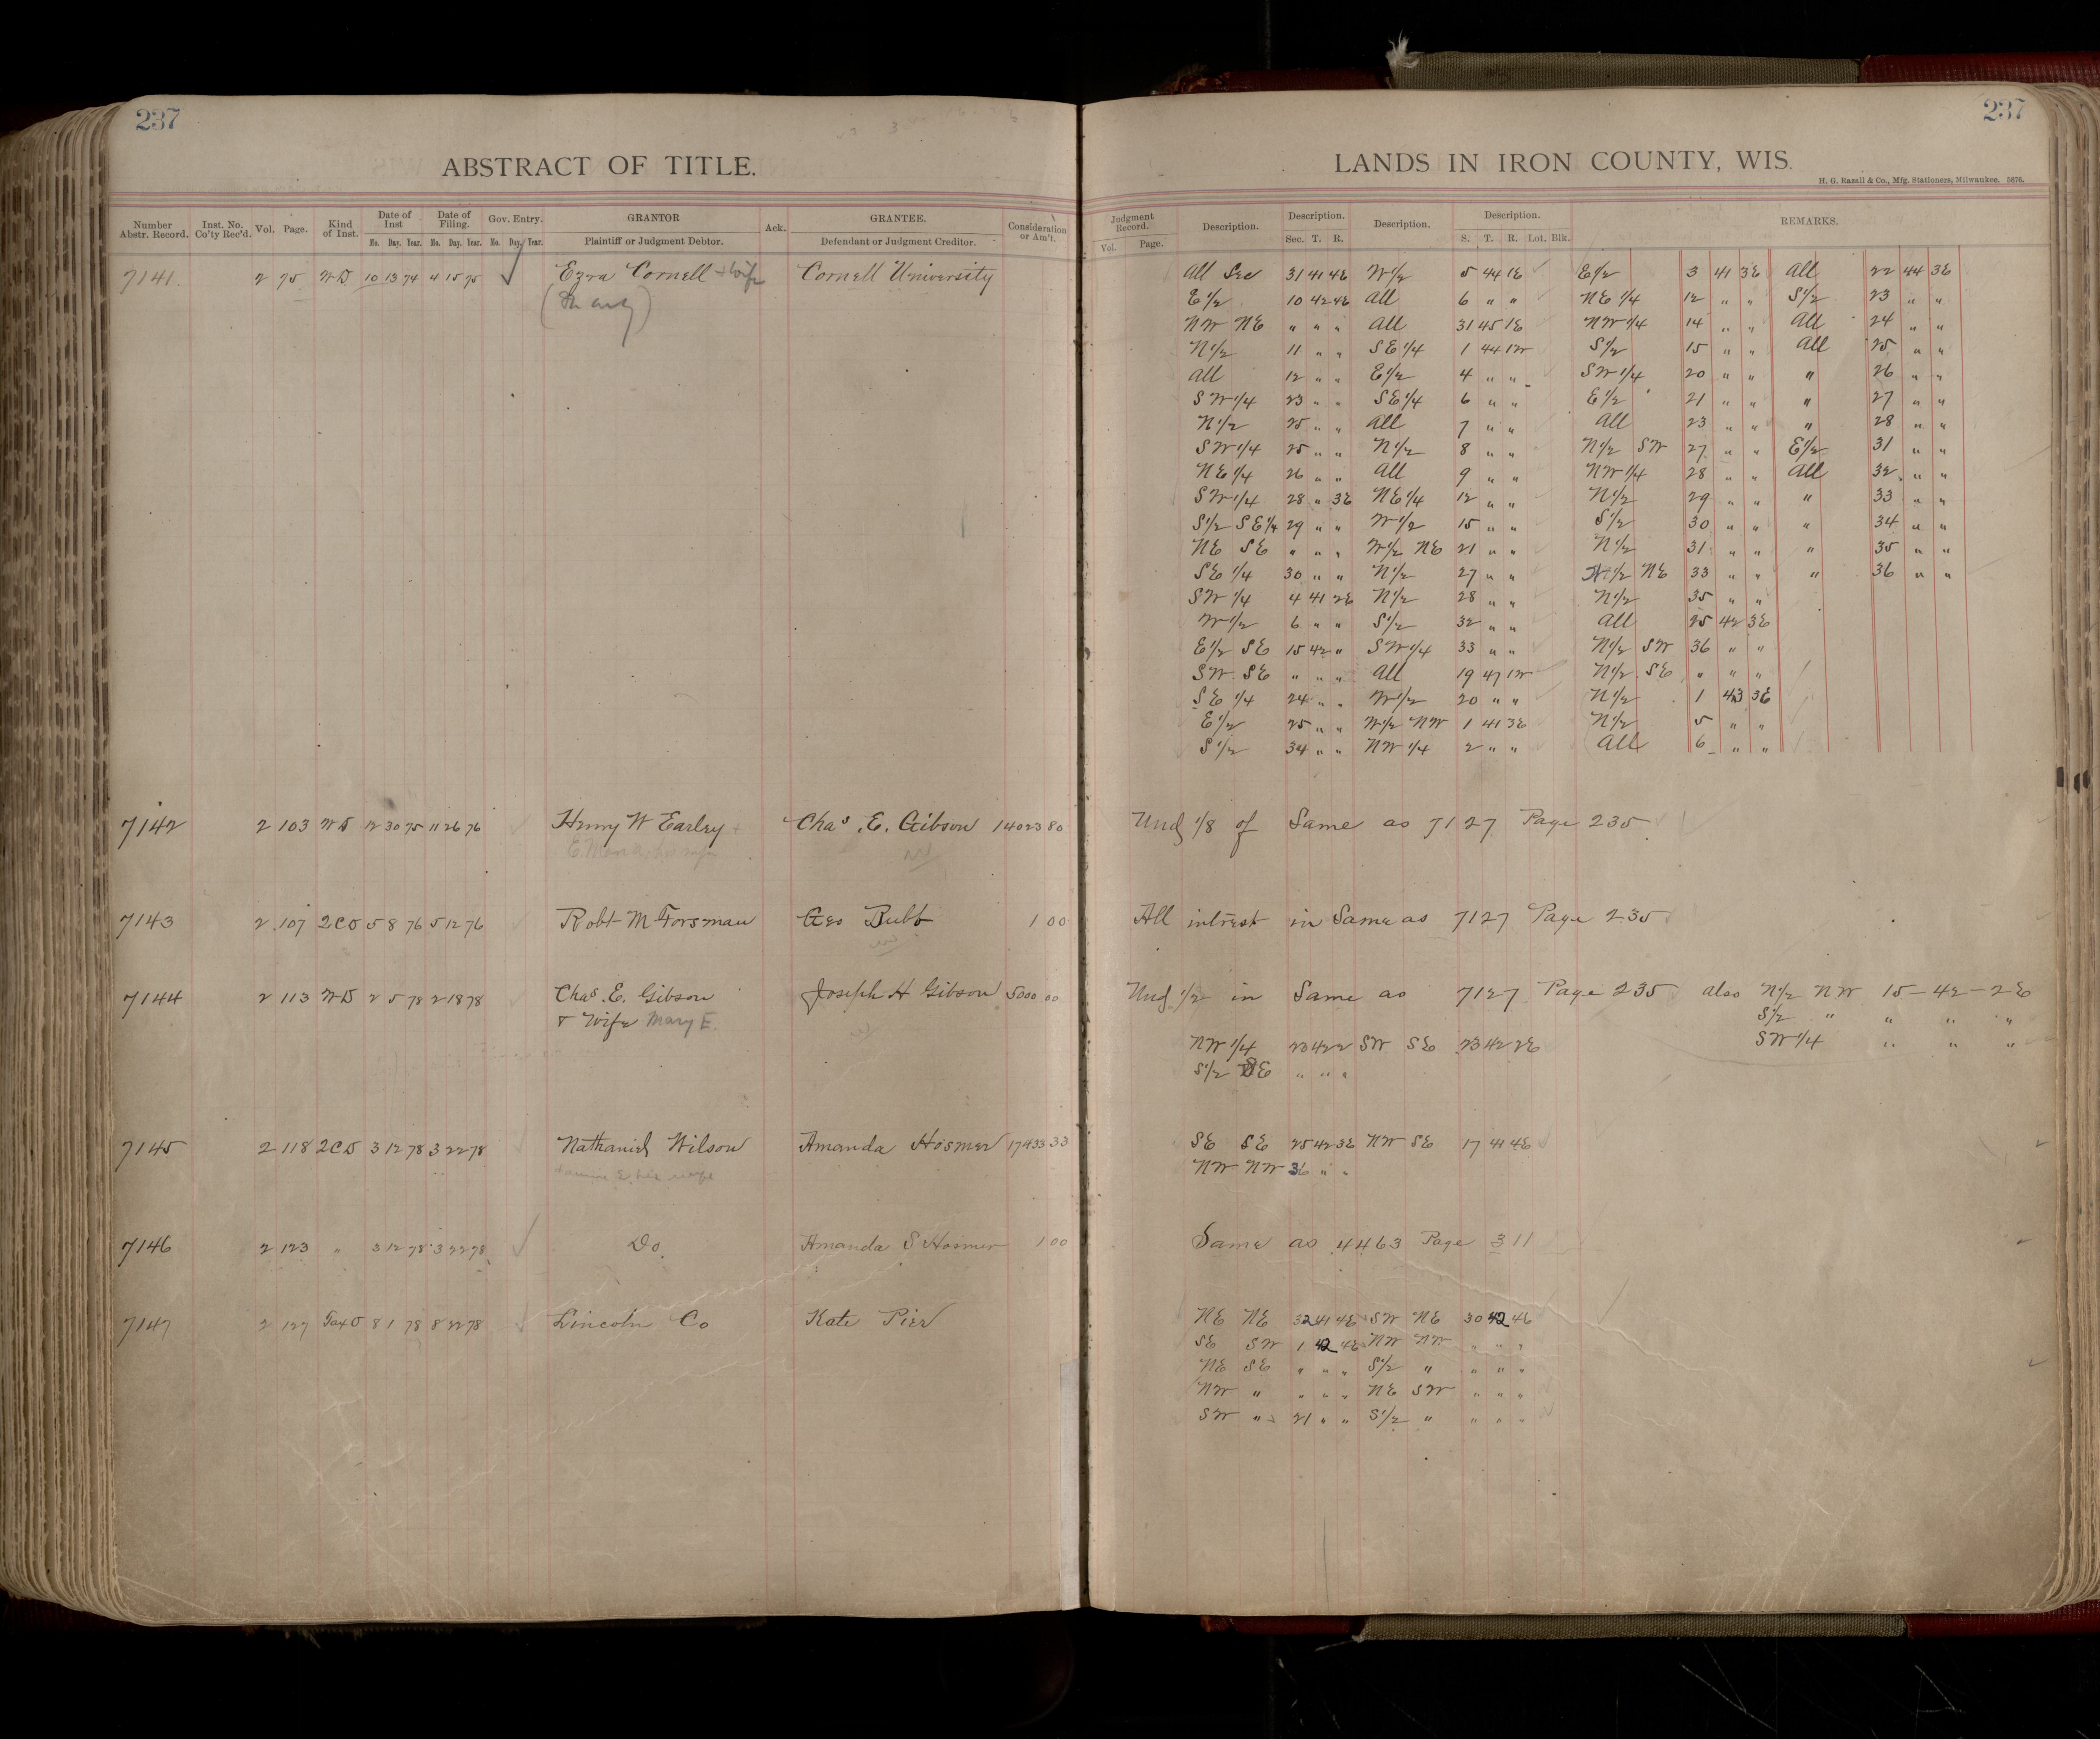 237
237
ABSTRACT OF TITLE.
LANDS IN IRON COUNTY, WIS.
H. G. Razall & Co., Mfg. Stationers, Milwaukee. 5876.
Number Abstr. Record. Inst. No. Co'ty Rec'd. Vol. Page. Kind of Inst. Date of Inst Mo. Day. Year. Date of Filing. Mo. Day. Year. Gov. Entry. Mo. Day. Year. GRANTOR Plaintiff or Judgment Debtor. Ack. GRANTEE. Defendant or Judgment Creditor. Consideration or Am't.
Judgment Record. Vol. Page. Description. Description. Sec. T. R. Description. Description. S. T. R. Lot. Blk. REMARKS.
7141. 2 75 WD 10 13 74 4 15 75 Ezra Cornell + wife Cornell University
All Sec 31 41 4E W1/2 5 44 1E E1/2 3 41 3E All 22 44 3E
E1/2 10 42 4E All 6 " " NE 1/4 12 " " S1/2 23 " "
NW NE " " " All 31 45 1E NW1/4 14 " " All 24 " "
N1/2 11 " " SE1/4 1 44 1W S1/2 15 " " All 25 " "
All 12 " " E1/2 4 " " SW1/4 20 " " " 26 " "
SW1/4 23 " " SE1/4 6 " " E1/2 21 " " " 27 " "
N1/2 25 " " All 7 " " All 23 " " " 28 " "
SW1/4 25 " " N1/2 8 " " N1/2 SW 27 " " E1/2 31 " "
NE1/4 26 " " All 9 " " NW1/4 28 " " All 32 " "
SW1/4 28 " 3E NE1/4 12 " " N1/2 29 " " " 33 " "
S1/2 SE1/4 29 " " W1/2 15 " " S1/2 30 " " " 34 " "
NE SE " " " W1/2 NE 21 " " N1/2 31 " " " 35 " "
SE 1/4 30 " " N1/2 27 " " N1/2 NE 33 " " " 36 " "
SW 1/4 4 41 2E N1/2 28 " " N1/2 35 " "
W1/2 6 " " S1/2 32 " " All 25 42 3E
E1/2 SE 15 42 " SW1/4 33 " " N1/2 SW 36 " "
SW SE " " " All 19 47 1W N1/2 SE " " "
SE 1/4 24 " " W1/2 20 " " N1/2 1 43 3E
E1/2 25 " " W1/2 NW 1 41 3E N1/2 5 " "
S1/2 34 " " NW 1/4 2 " " All 6 " "
7142 2 103 WD 12 30 75 11 26 76 Henry W Earley + Chas. E. Gibson 14023 80 Und 1/8 of Same as 7127 Page 235
7143 2 107 2CD 5 8 76 5 12 76 Robt M Forsman Geo Bubb 1 00 All intrest in Same as 7127 Page 235
7144 2 113 WD 2 5 78 2 18 78 Chas. E. Gibson Joseph H Gibson 5000 00 Und 1/2 in Same as 7127 Page 235 also N1/2 NW 15 - 42 - 2E
& Wife Mary E. S1/2 " " " "
NW 1/4 23 42 2 SW SE 23 42 2E SW1/4 " " "
S1/2 SE " " "
7145 2 118 2CD 3 12 78 3 22 78 Nathaniel Wilson Amanda Hosmer 17933 33 SE SE 25 42 3E NW SE 17 41 4E
his wife NW NW 36 " "
7146 2 123 " 3 12 78 3 22 78 Do. Amanda S Hosmer 1 00 Same as 4463 Page 311
7147 2 127 Tax D 8 1 78 8 22 78 Lincoln Co Kate Pier NE NE 32 41 4E SW NE 30 42 4E
SE SW 1 42 4E NW NW " " "
NE SE " " " S1/2 " " " "
NW " " " " NE SW " " "
SW " 21 " " S1/2 " " " "